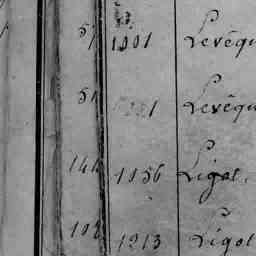 57 1001 Levêqu
51 1 Levêqu
144 1156 Ligot.
102 1213 Ligot